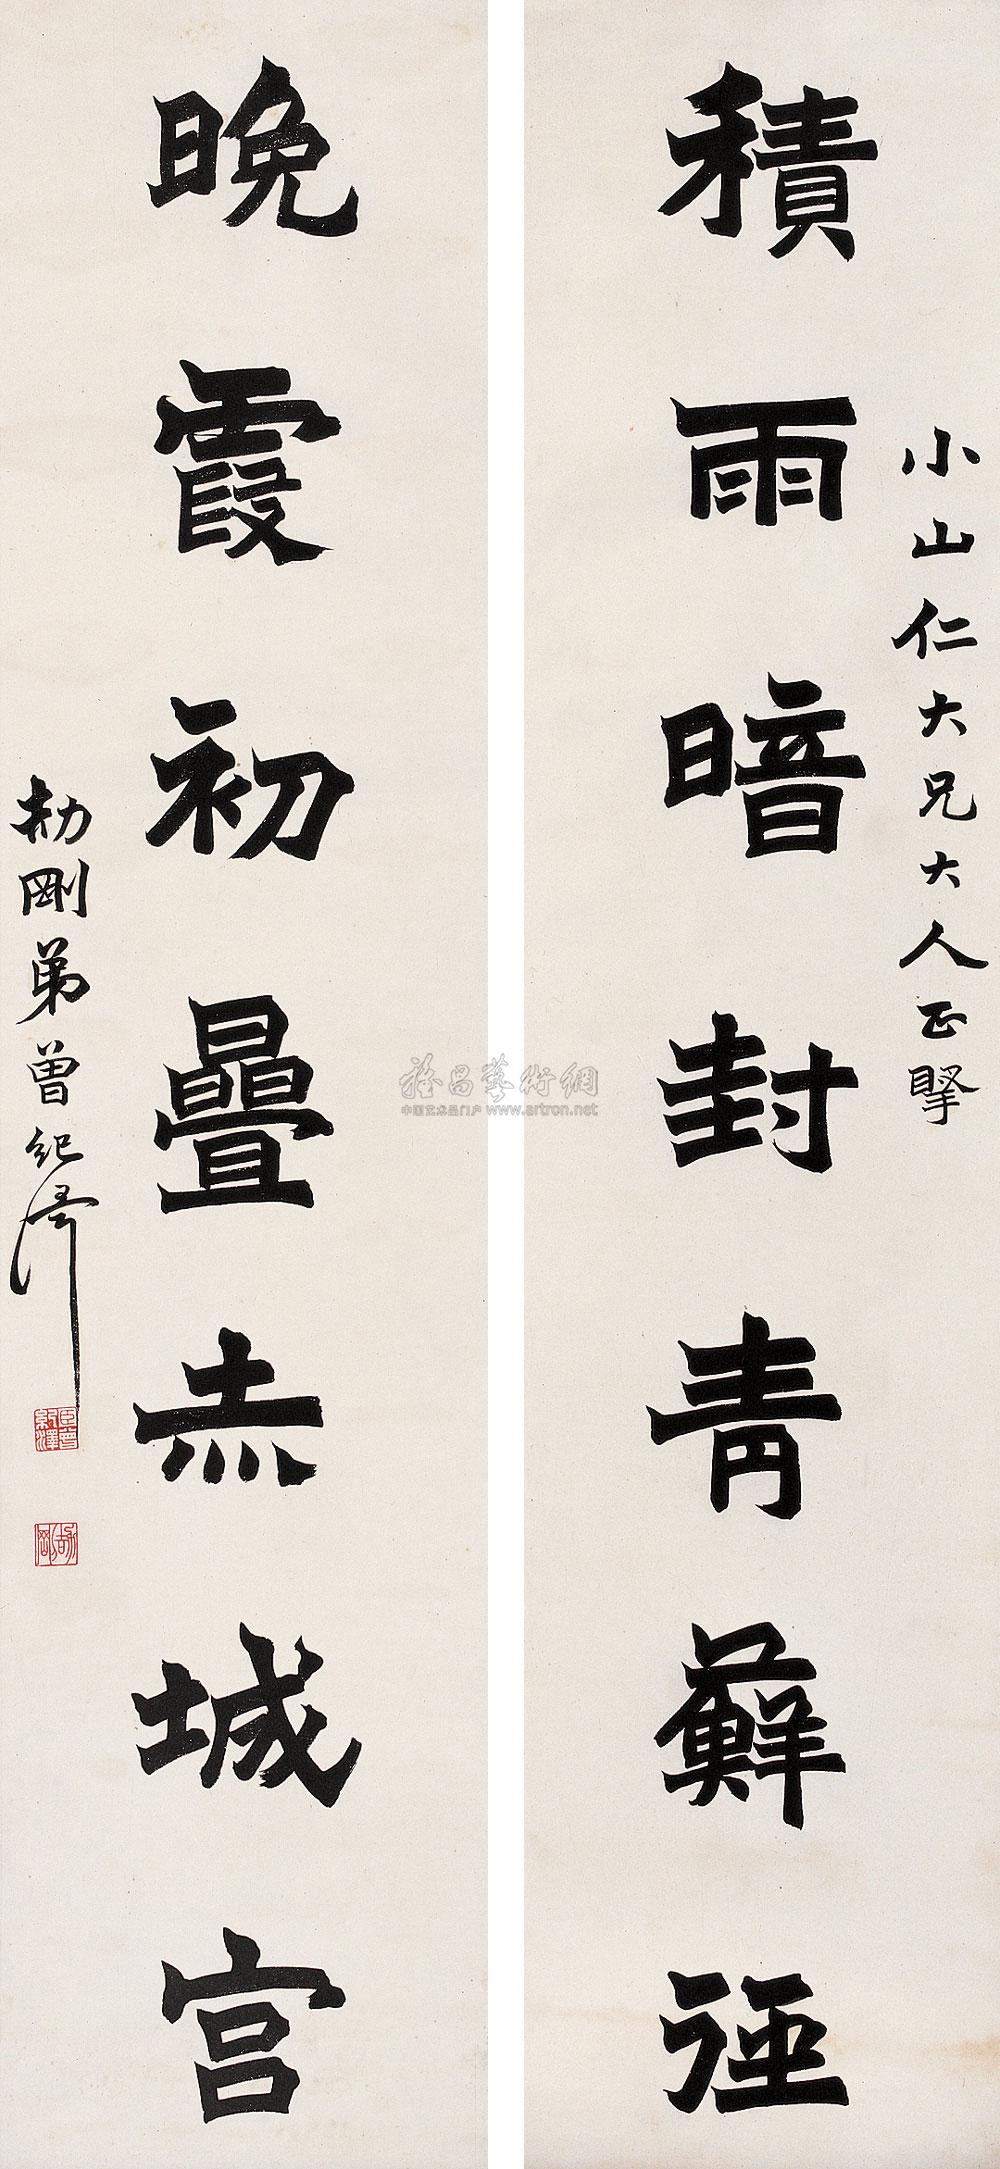 小山仁大兄大人正擊
積雨暗封青蘚徑
晚霞初疊赤城宫
劼剛弟曾紀澤
臣曾紀澤
劼剛
雅昌藝術網
中国艺术品门户 www.artron.net